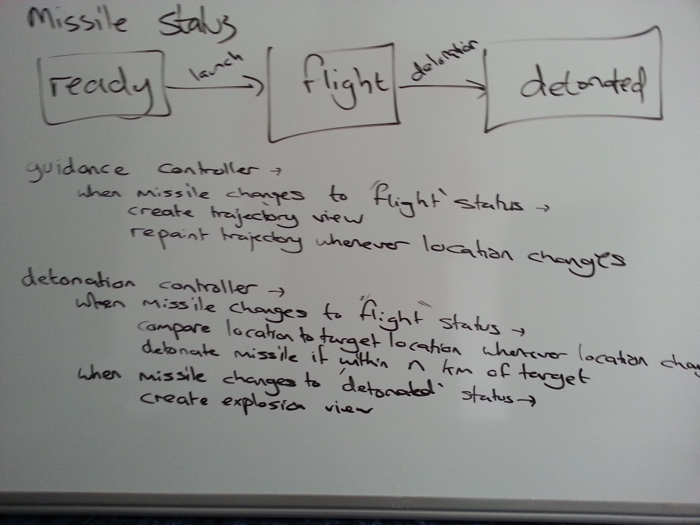 Missile Status
ready launch flight detonation detonated
guidance controller →
when missile changes to 'flight' status →
create trajectory view
repaint trajectory whenever location changes
detonation controller →
when missile changes to 'flight' status →
compare location to target location whenever location chan
detonate missile if within n km of target
when missile changes to 'detonated' status →
create explosion view